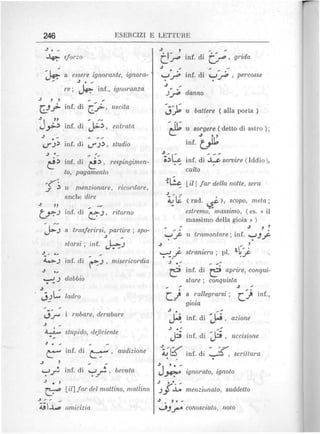 246 ESERCIZI E LETTURE
جهد sforzo
جهل a essere ignorante, ignora-
re; جهل inf., ignoranza
خروج inf. di خرج, uscita
دخول inf. di دخل, entrata
درس inf. di درس, studio
دفع inf. di دفع, respingimen-
to, pagamento
ذكر u menzionare, ricordare,
anche dire
رجوع inf. di رجع, ritorno
رحل a trasferirsi, partire; spo-
starsi; inf. رحيل
رحمة inf. di رحم, misericordia
ريب dubbio
سارق ladro
سرق i rubare, derubare
سخيف stupido, deficiente
سمع inf. di سمع, audizione
شرب inf. di شرب, bevuta
صبح [il] far del mattino, mattino
صداقة amicizia
صراخ inf. di صرخ, grida
ضرب inf. di ضرب, percosse
ضرر danno
طرق u battere (alla porta)
طلع u sorgere (detto di astro);
inf. طلوع
عبادة inf. di عبد servire (Iddio),
culto
عشاء [il] far della notte, sera
غاية (rad. غيى), scopo, meta;
estremo, massimo, (es. « il
massimo della gioia »)
غرب u tramontare; inf. غروب
غريب straniero; pl. غرباء
فتح inf. di فتح aprire, conqui-
stare; conquista
فرح a rallegrarsi; فرح inf.,
gioia
فعل inf. di فعل, azione
قتل inf. di قتل, uccisione
كتابة inf. di كتب, scrittura
مجهول ignorato, ignoto
مذكور menzionato, suddetto
معروف conosciuto, noto